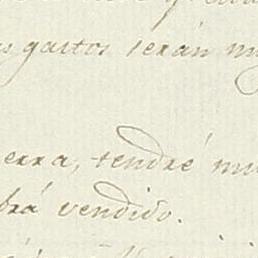 s gastos serán mu
erra, tendré mu
brá vendido.